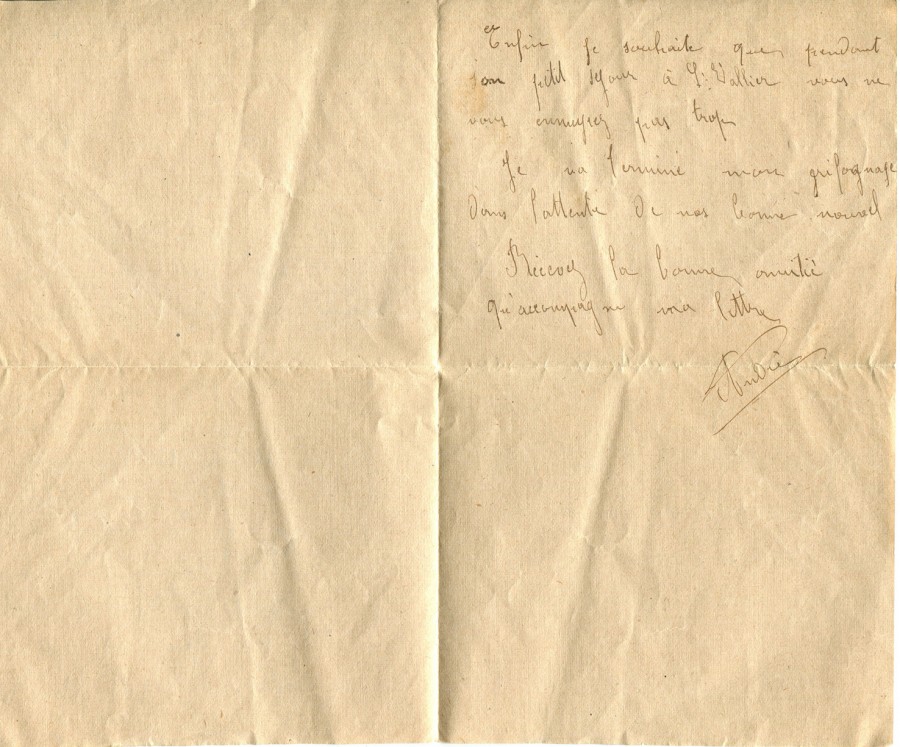 Enfin je souhaite que pendant
son petit séjour à St Vallier vous ne
vous ennuyez pas trop
Je va terminé mon grifognage
dans l'attente de nos bonne nouvel
Recevez la bonne amitié
qu'accompagne ma lettre
André